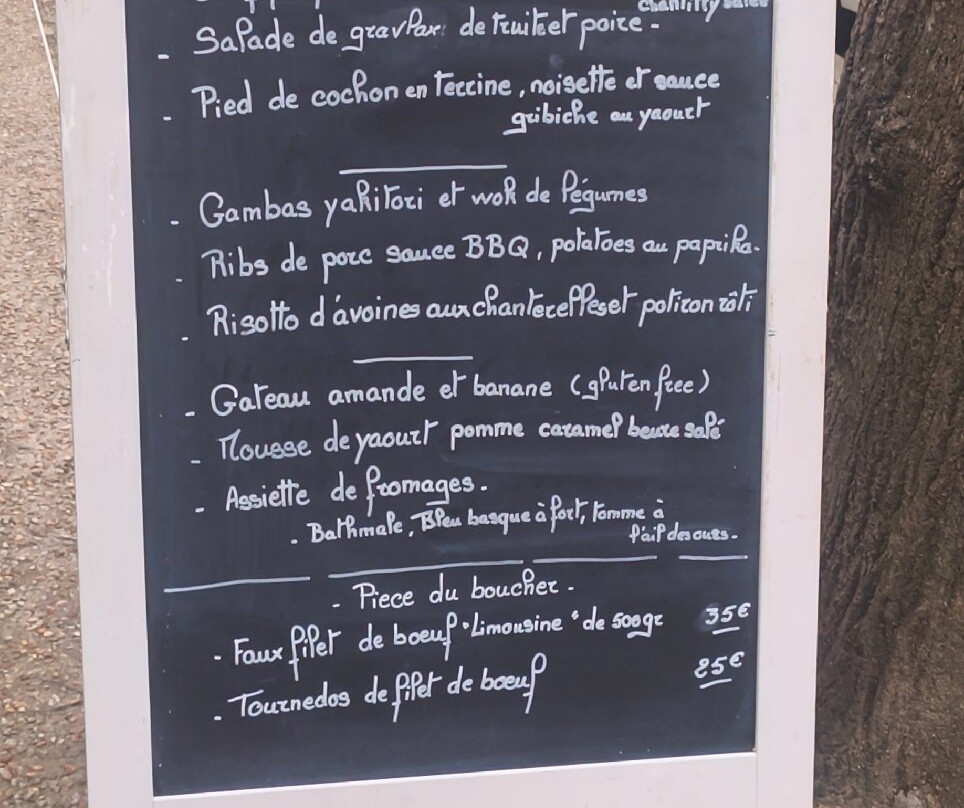 chantilly salée
- Salade de gravlax de truite et poire -
- Pied de cochon en terrine, noisette et sauce
gribiche au yaourt
- Gambas yakitori et wok de légumes
- Ribs de porc sauce BBQ, potatoes au paprika.
- Risotto d'avoines aux chanterelles et potiron rôti
- Gateau amande et banane (gluten free)
- Mousse de yaourt pomme caramel beurre salé
- Assiette de fromages.
- Bathmale, Bleu basque à fort, tomme à
l'ail des ours.
- Piece du boucher -
- Faux filet de boeuf "Limousine" de 500gr 35€
- Tournedos de filet de boeuf 25€